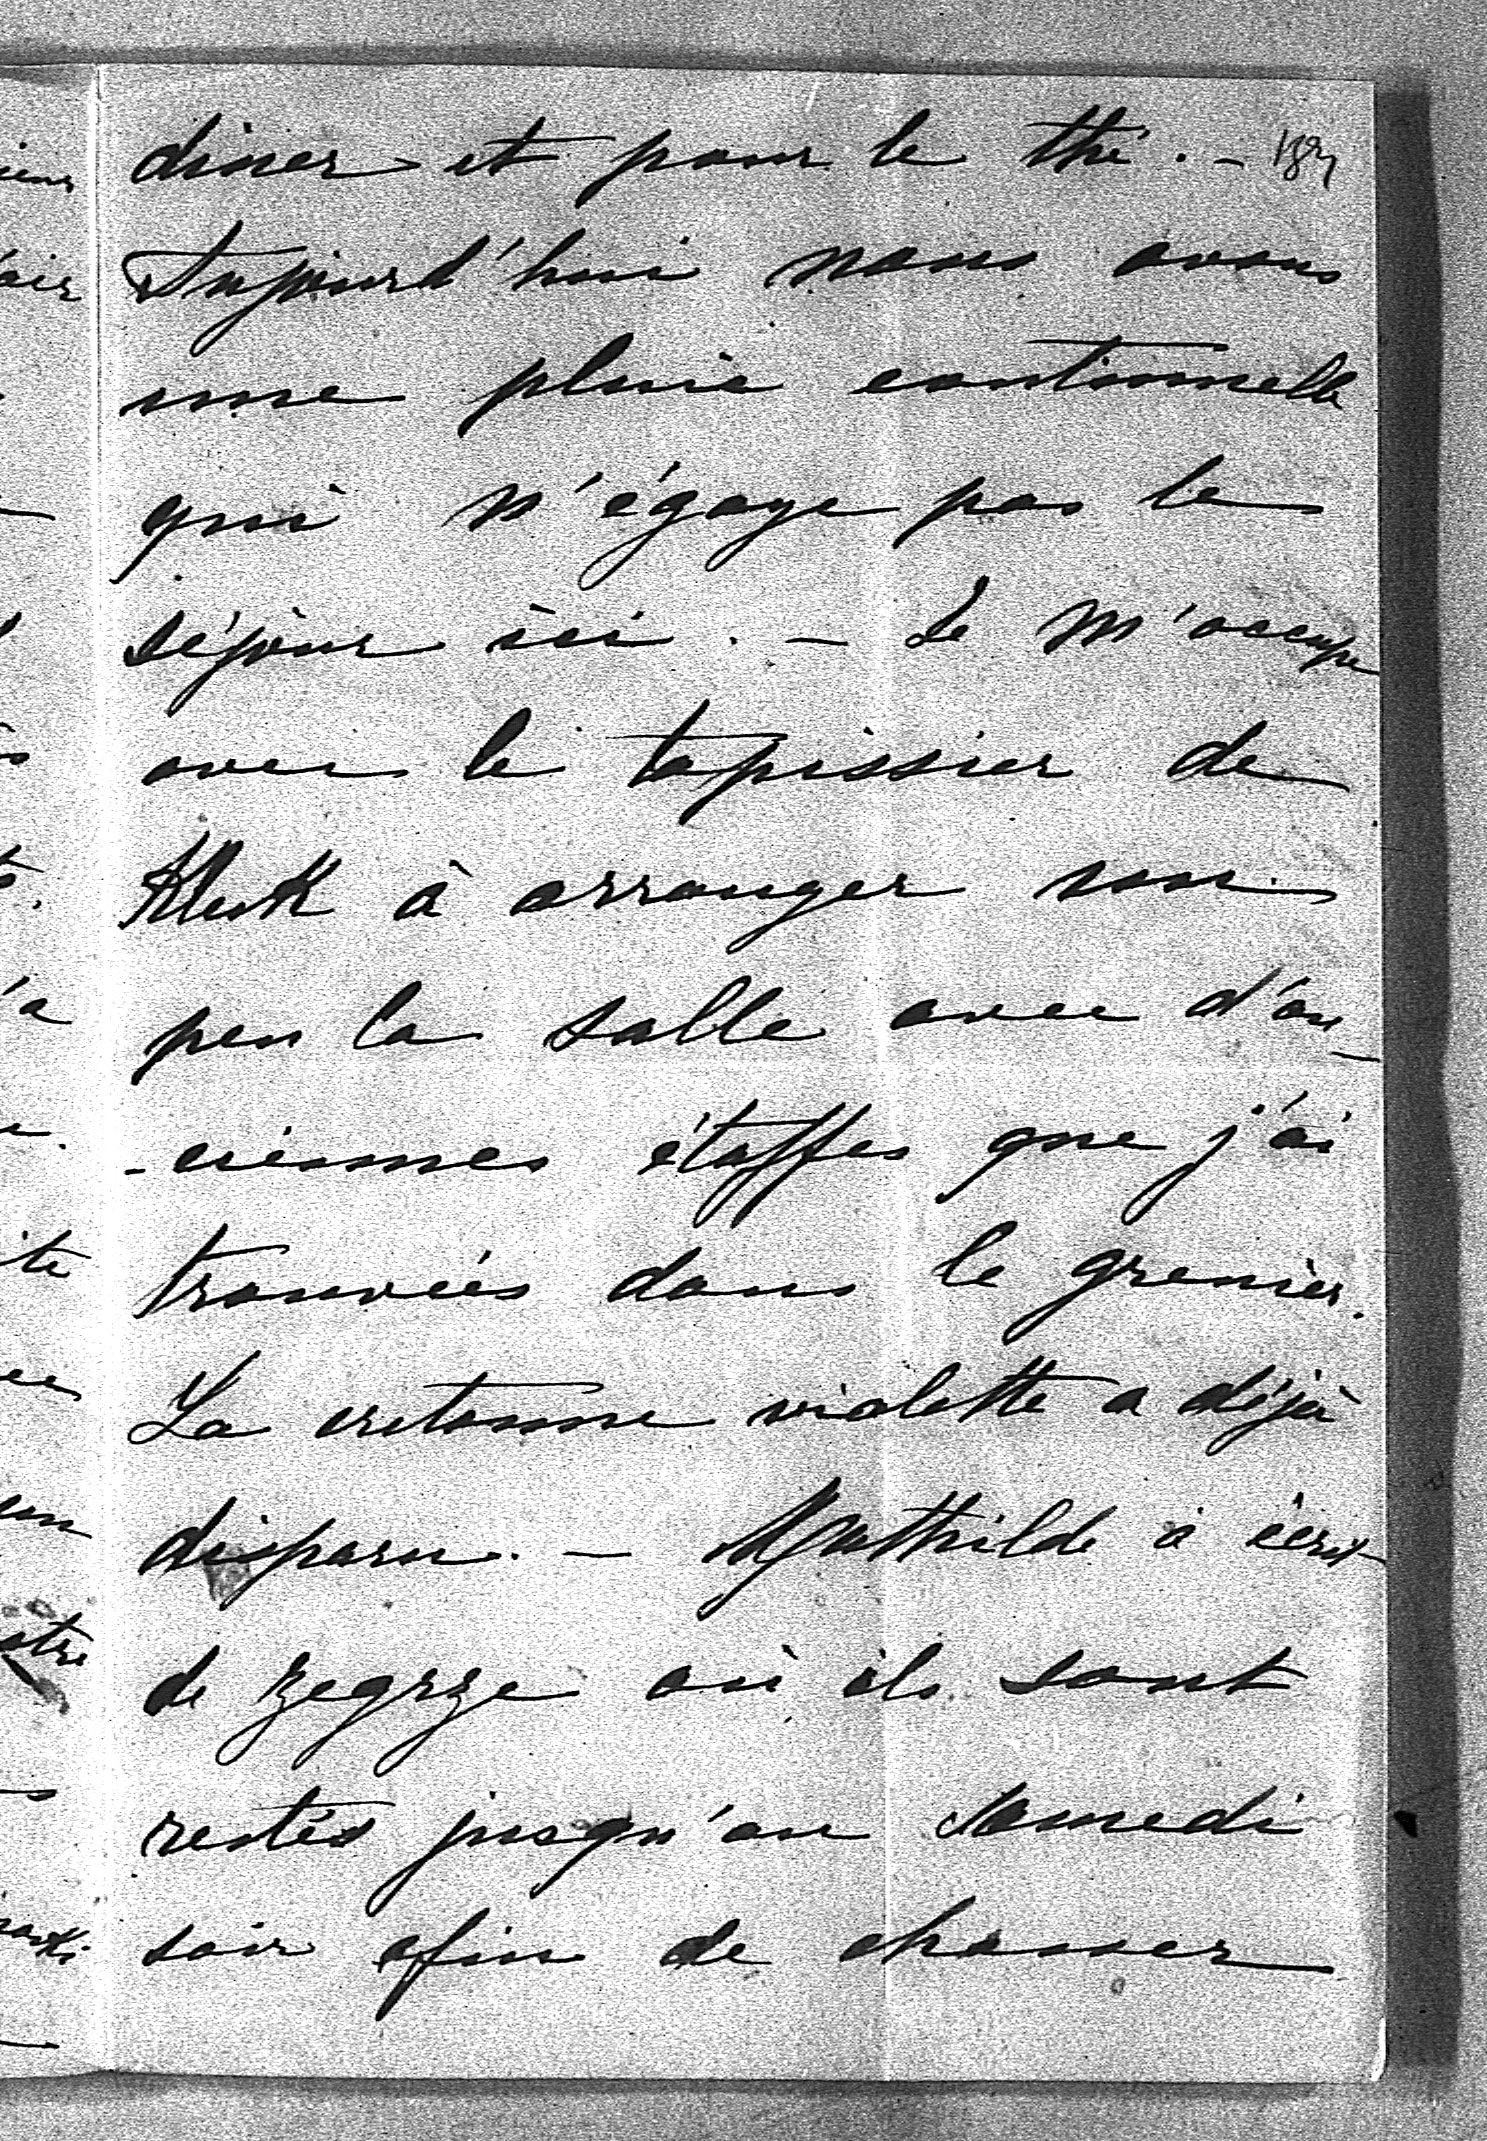 diner et pour le thé. -
Aujourd'hui nous avons
une pluie continuelle
qui n'égaye pas le
séjour ici. - Je m'occupe
avec le tapissier de
Kluk à arranger un
peu la salle avec d'an-
-ciennes étoffes que j'ai
trouvées dans le grenier.
La cretonne violette a déjà
disparu. - Mathilde a écrit
de Zegrze où ils sont
restés jusqu'au Samedi
soir afin de chasser